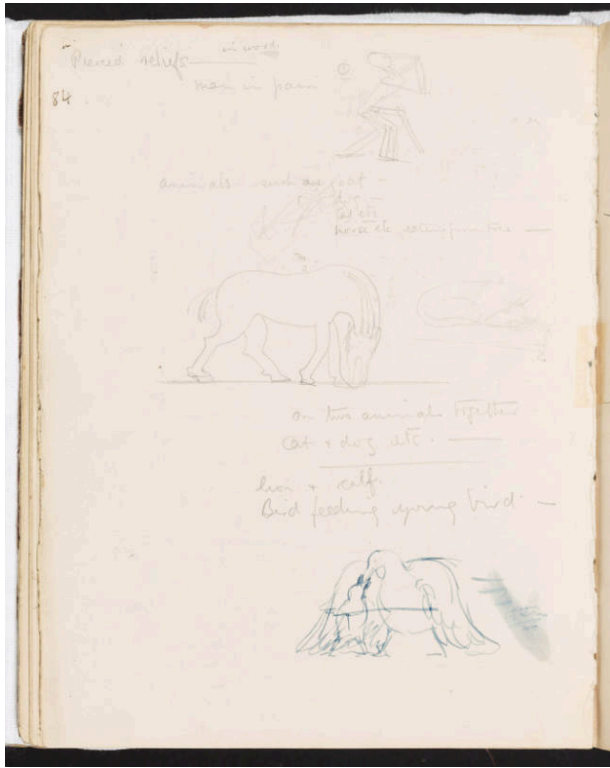 Pierced reliefs — in wood.
84
man in pain
①
animals such as goat —
dog —
cat etc
horse etc eating
or two animals together
cat + dog etc. —
lion + calf
Bird feeding young bird. —